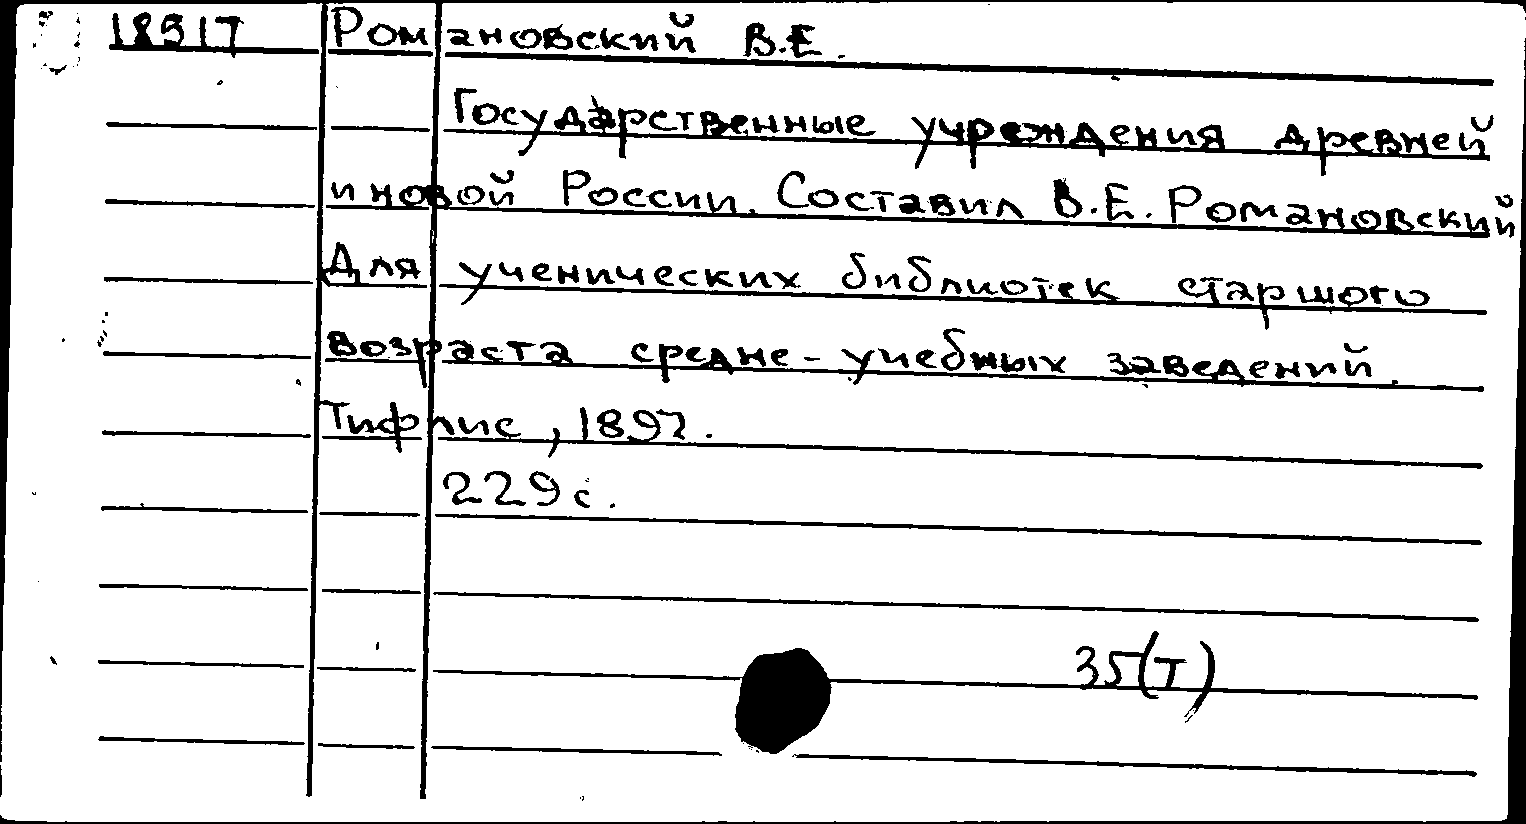 18517 Романовский В.Е.
Государственные учреждения древней
и новой России. Составил В.Е. Романовский
Для ученических библиотек старшого
возраста средне-учебных заведений.
Тифлис, 1897.
229 с.
35(Т)